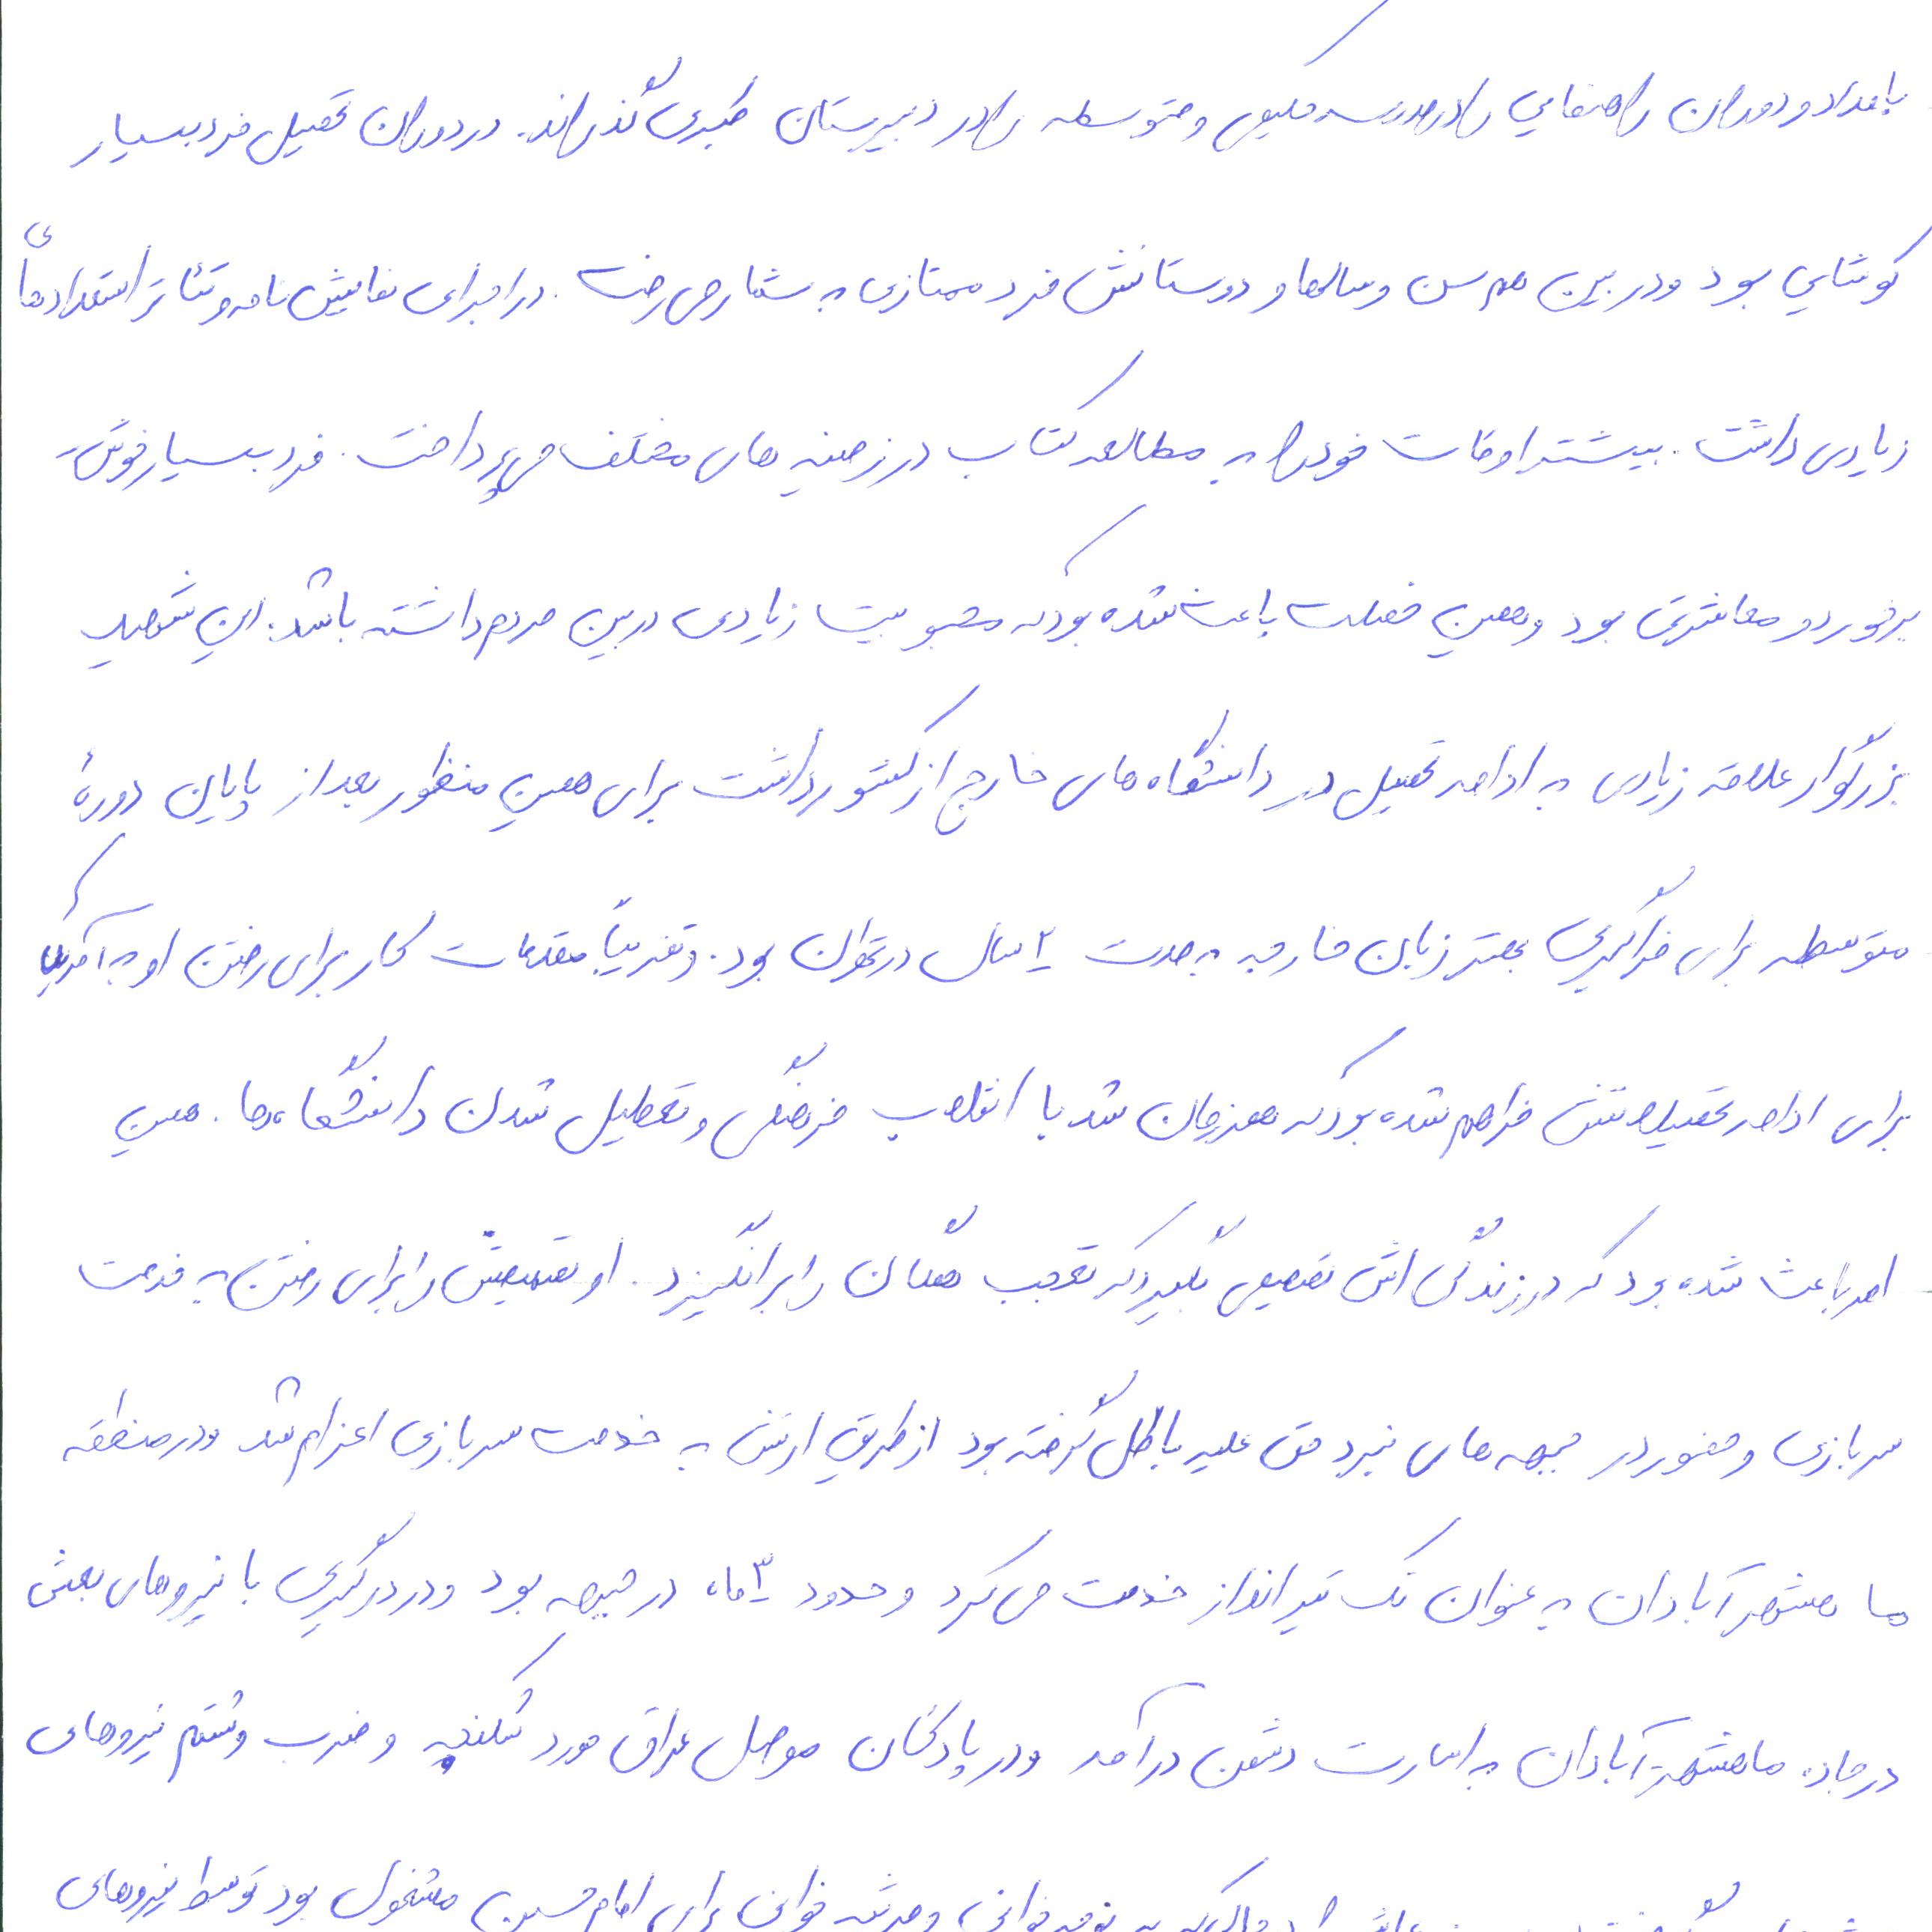 بامداد و دوران راهنمایی را در مدرسه حکیمی و متوسطه را در دبیرستان طبری گذراند. در دوران تحصیل فرد بسیار
کوشایی بود و در بین هم سن و سالها و دوستانش فرد ممتازی به شمار می رفت. در اجرای نمایش نامه و تئاتر استعدادهای
زیادی داشت. بیشتر اوقات خود را به مطالعه کتاب در زمینه های مختلف می پرداخت. فرد بسیار خوش
برخورد و معاشرتی بود و همین خصلت باعث شده بود که محبوبیت زیادی در بین مردم داشته باشد. این شهید
بزرگوار علاقه زیادی به ادامه تحصیل در دانشگاه های خارج از کشور داشت برای همین منظور بعد از پایان دورهٔ
متوسطه برای فراگیری بهتر زبان خارجه به مدت ۲ سال در تهران بود. و تقریباً مقدمات کار برای رفتن او به آمریکا
برای ادامه تحصیلاتش فراهم شده بود که همزمان شد با انقلاب فرهنگی و تعطیل شدن دانشگاه ها. همین
امر باعث شده بود که در زندگی اش تصمیمی بگیرد که تعجب همگان را برانگیزد. او تصمیمش را برای رفتن به خدمت
سربازی و حضور در جبهه های نبرد حق علیه باطل گرفته بود از طریق ارتش به خدمت سربازی اعزام شد و در منطقه
ماهشهر آبادان به عنوان تک تیرانداز خدمت می کرد و حدود ۳ ماه در جبهه بود و در درگیری با نیروهای بعثی
در جاده ماهشهر آبادان به اسارت دشمن درآمد و در پادگان موصل عراق مورد شکنجه و ضرب و شتم نیروهای
به نوحه خوانی و مرثیه خوانی برای امام حسین مشغول بود توسط نیروهای